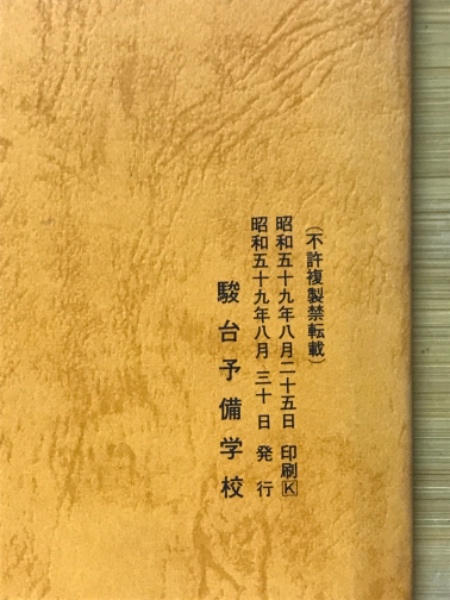 （不許複製禁転載）
昭和五十九年八月二十五日 印刷K
昭和五十九年八月 三十 日 発 行
駿台予備学校